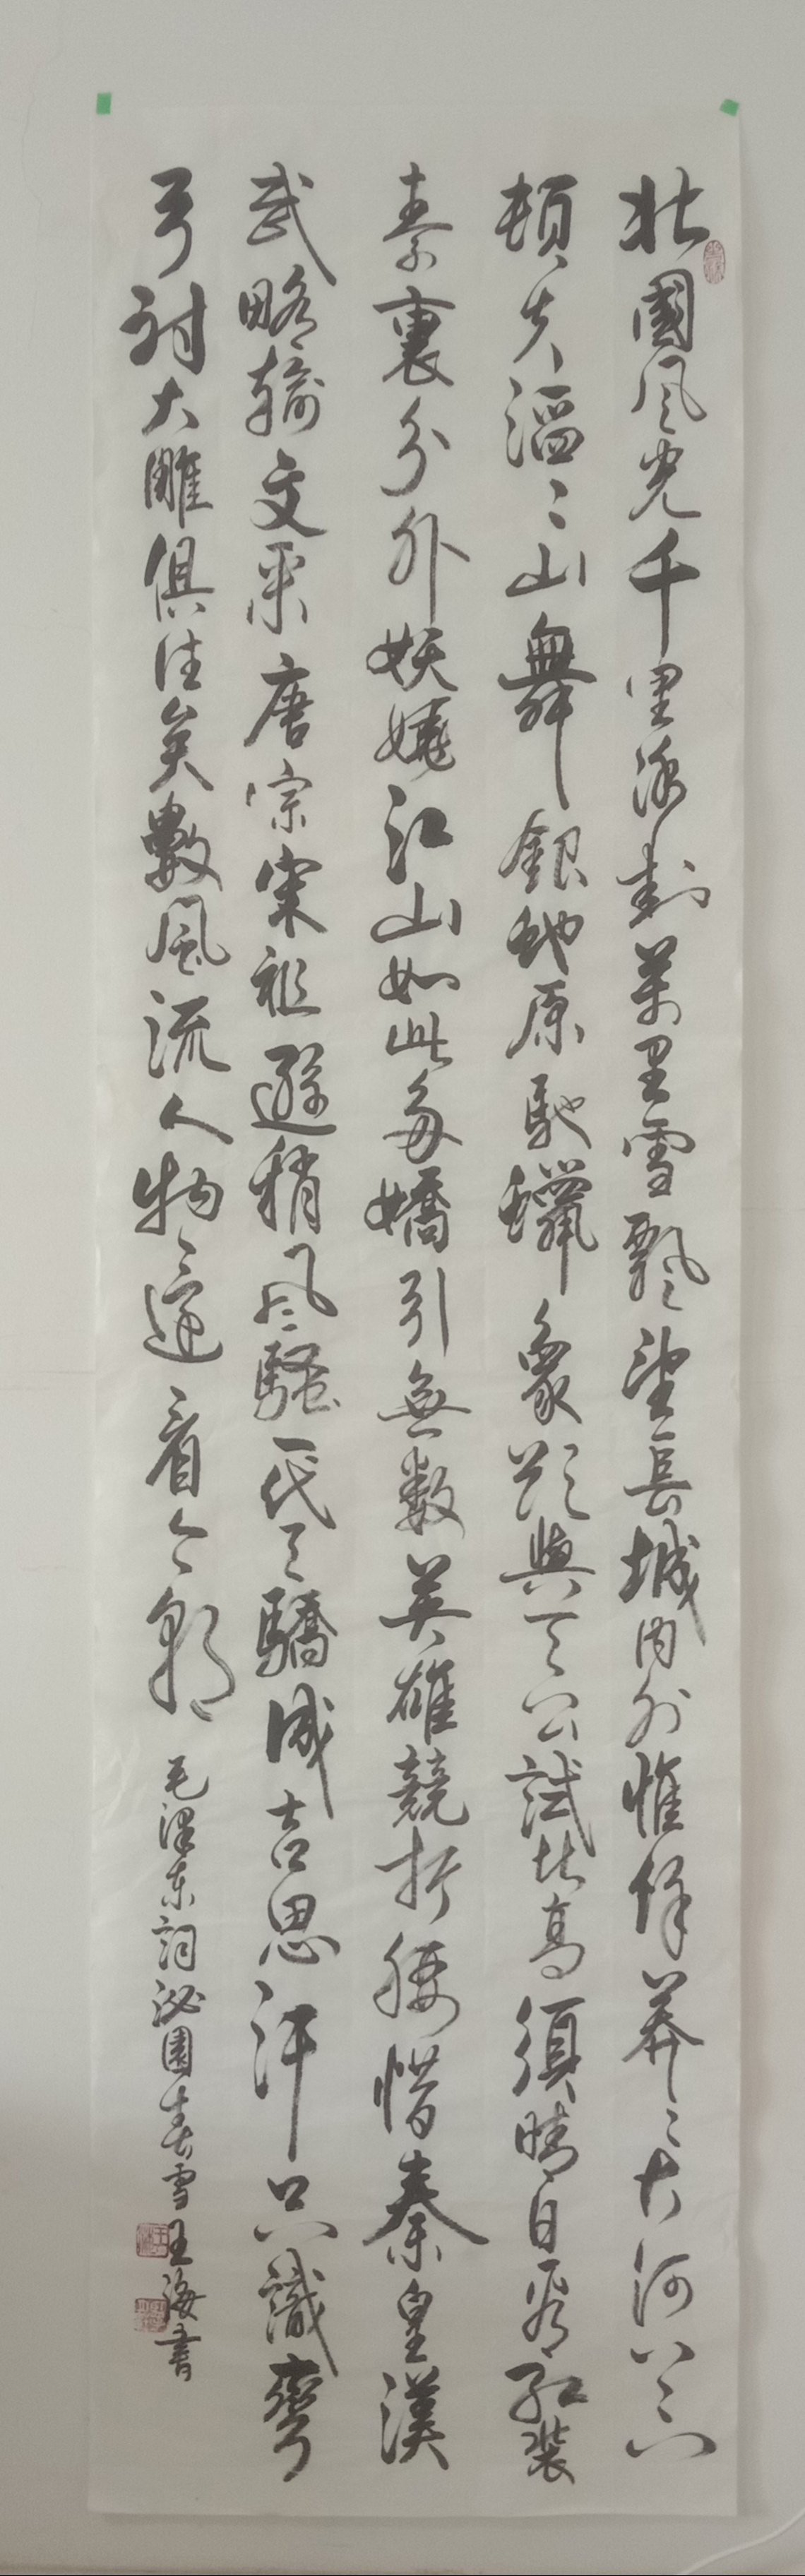 北國風光千里冰封萬里雪飄望長城內外惟餘莽〻大河上下
頓失滔〻山舞銀蛇原馳蠟象欲與天公試比高須晴日看紅裝
素裹分外妖嬈江山如此多嬌引無數英雄競折腰惜秦皇漢
武略輸文采唐宗宋祖遜稍風騷一代天驕成吉思汗只識彎
弓射大雕俱往矣數風流人物還看今朝
毛澤東詞沁園春雪王海書